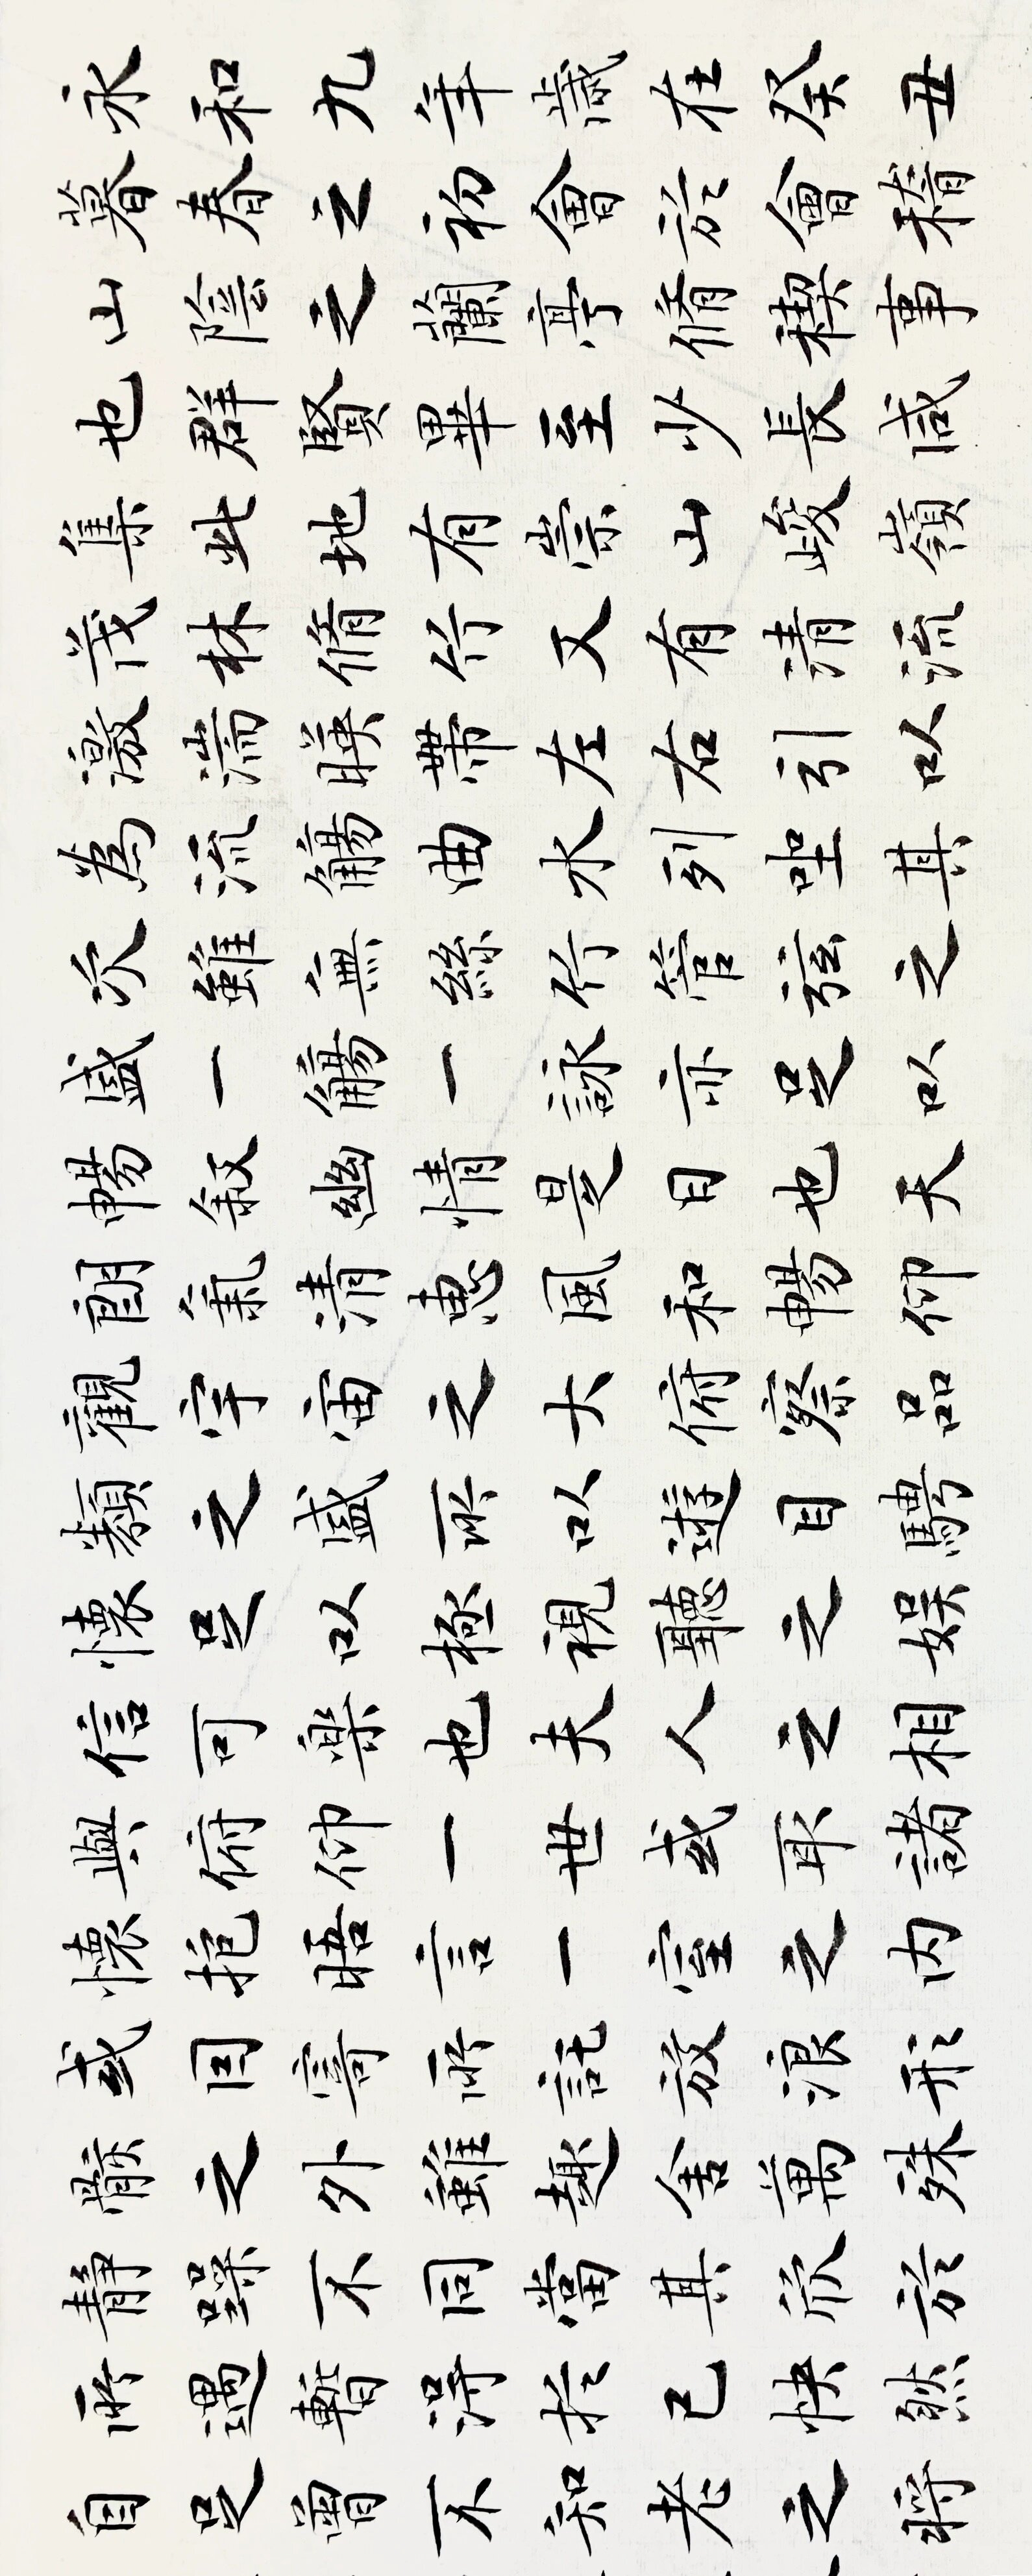 永和九年歲在癸丑
暮春之初會於會稽
山陰之蘭亭脩禊事
也群賢畢至少長咸
集此地有崇山峻嶺
茂林脩竹又有清流
激湍暎帶左右引以
為流觴曲水列坐其
次雖無絲竹管弦之
盛一觴一詠亦足以
暢叙幽情是日也天
朗氣清惠風和暢仰
觀宇宙之大俯察品
類之盛所以遊目騁
懷足以極視聽之娛
信可樂也夫人之相
與俯仰一世或取諸
懷抱晤言一室之內
或因寄所託放浪形
骸之外雖趣舍萬殊
靜躁不同當其欣於
所遇暫得於己快然
自足曾不知老之將